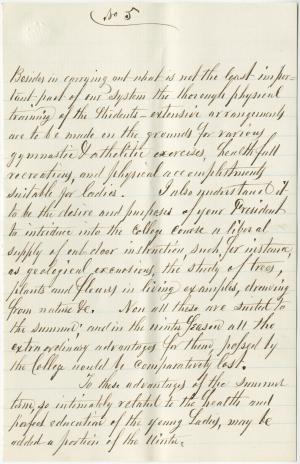 No 5
Besides in carrying out what is not the least impor-
tant part of our system the thorough physical
training of the Students - extensive arrangements
are to be made on the grounds for various
gymnastic & athletic exercises, healthfull
recreations, and physical accomplishments
suitable for ladies. I also understand it
to be the desire and purposes of your President
to introduce into the College course a liberal
supply of out door instruction, such, for instance,
as geological excursions, the study of trees,
plants and flowers in living examples, drawing
from nature &c. Now all these are suited to
the summer; and in the winter season all the
extraordinary advantages for them, possessed by
the College would be comparatively lost.
To these advantages of the summer
term, so intimately related to the health and
perfect education of the young Ladies, may be
added a portion of the Winter.